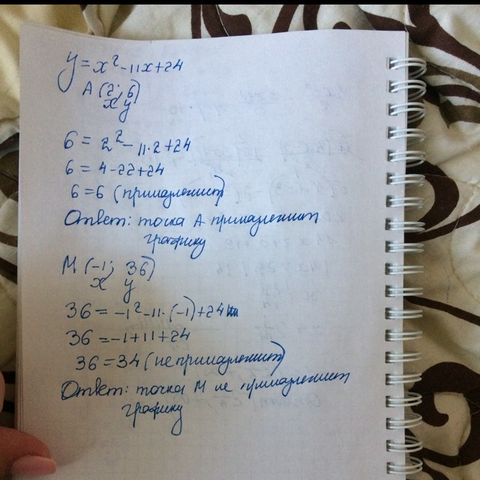 y = x² - 11x + 24
A (2; 6)
x y
6 = 2² - 11·2 + 24
6 = 4 - 22 + 24
6 = 6 (принадлежит)
Ответ: точка A принадлежит
графику
M (-1; 36)
x y
36 = -1² - 11·(-1) + 24
36 = -1 + 11 + 24
36 = 34 (не принадлежит)
Ответ: точка M не принадлежит
графику